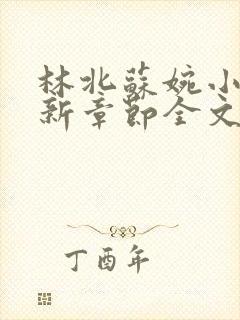 林北蘇婉小
新章節全文
丁酉年